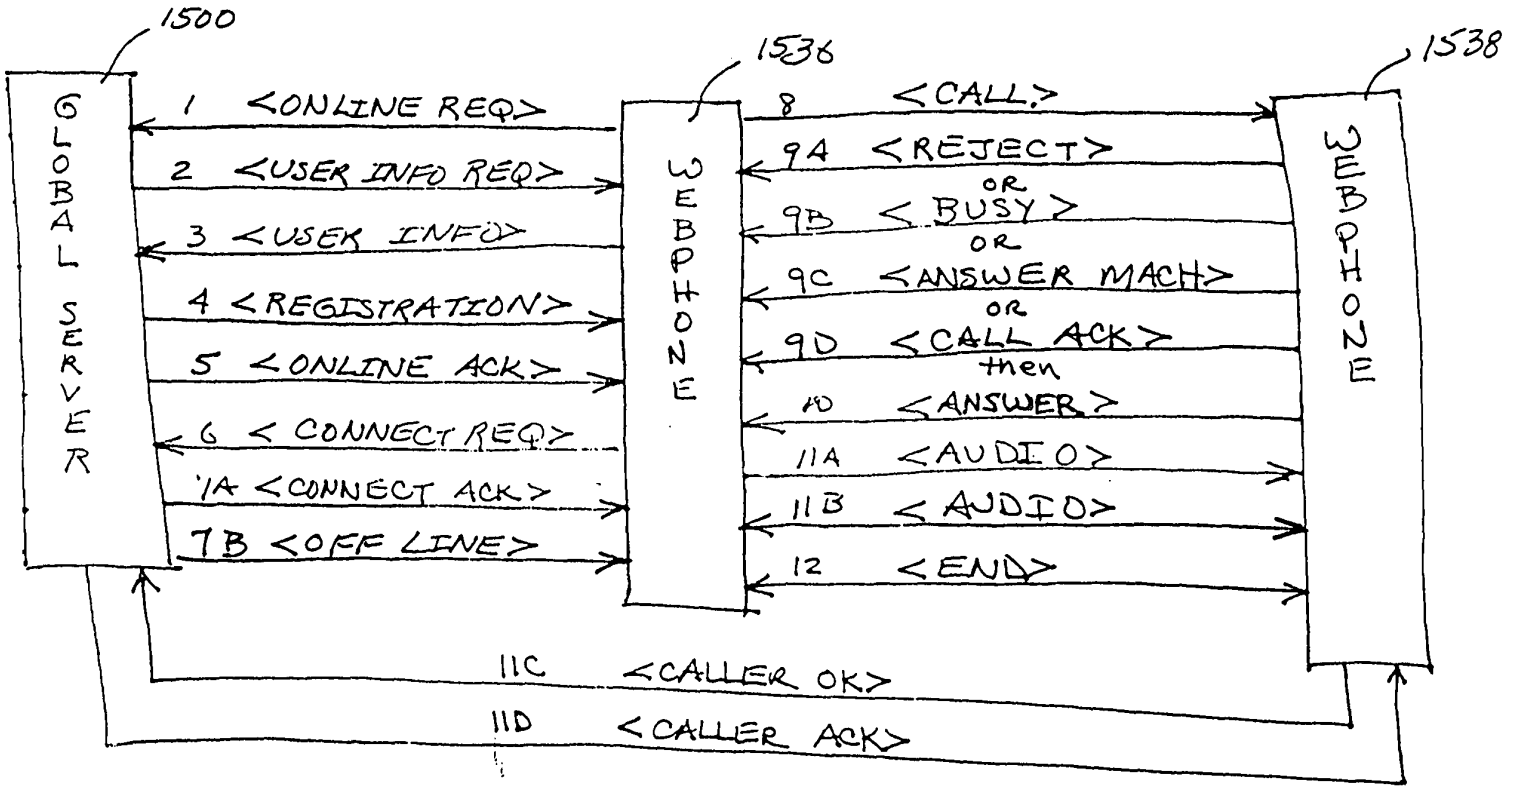 1500
1536
1538
GLOBAL SERVER
WEBPHONE
WEBPHONE
1 <ONLINE REQ>
2 <USER INFO REQ>
3 <USER INFO>
4 <REGISTRATION>
5 <ONLINE ACK>
6 <CONNECT REQ>
7A <CONNECT ACK>
7B <OFF LINE>
8 <CALL.>
9A <REJECT>
OR
9B <BUSY>
OR
9C <ANSWER MACH>
OR
9D <CALL ACK>
then
10 <ANSWER>
11A <AUDIO>
11B <AUDIO>
12 <END>
11C <CALLER OK>
11D <CALLER ACK>